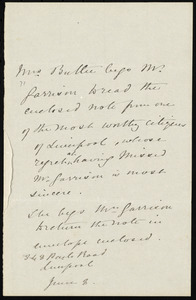 Mrs Butler begs Mr
Garrison to read the
enclosed note from one
of the most worthy citizens
of Liverpool whose
regret at having missed
Mr Garrison is most
sincere.
She begs Mr Garrison
to return the note in
envelope enclosed.
348 Park Road
Liverpool
June 8.